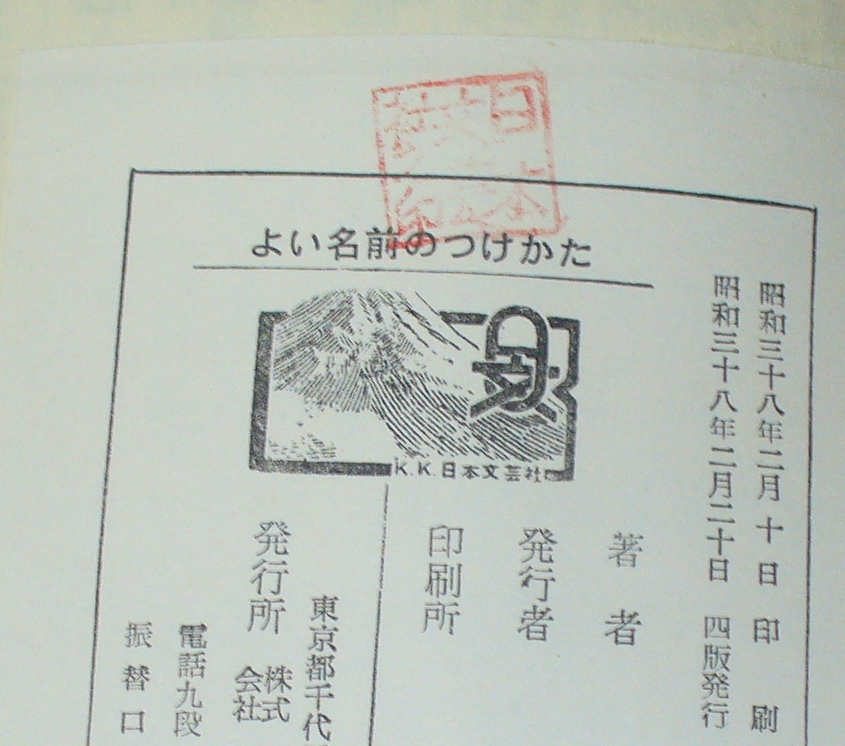 よい名前のつけかた
K.K.日本文芸社
昭和三十八年二月十日 印刷
昭和三十八年二月二十日 四版発行
著者
発行者
印刷所
東京都千代
発行所 株式会社
電話九段
振替口